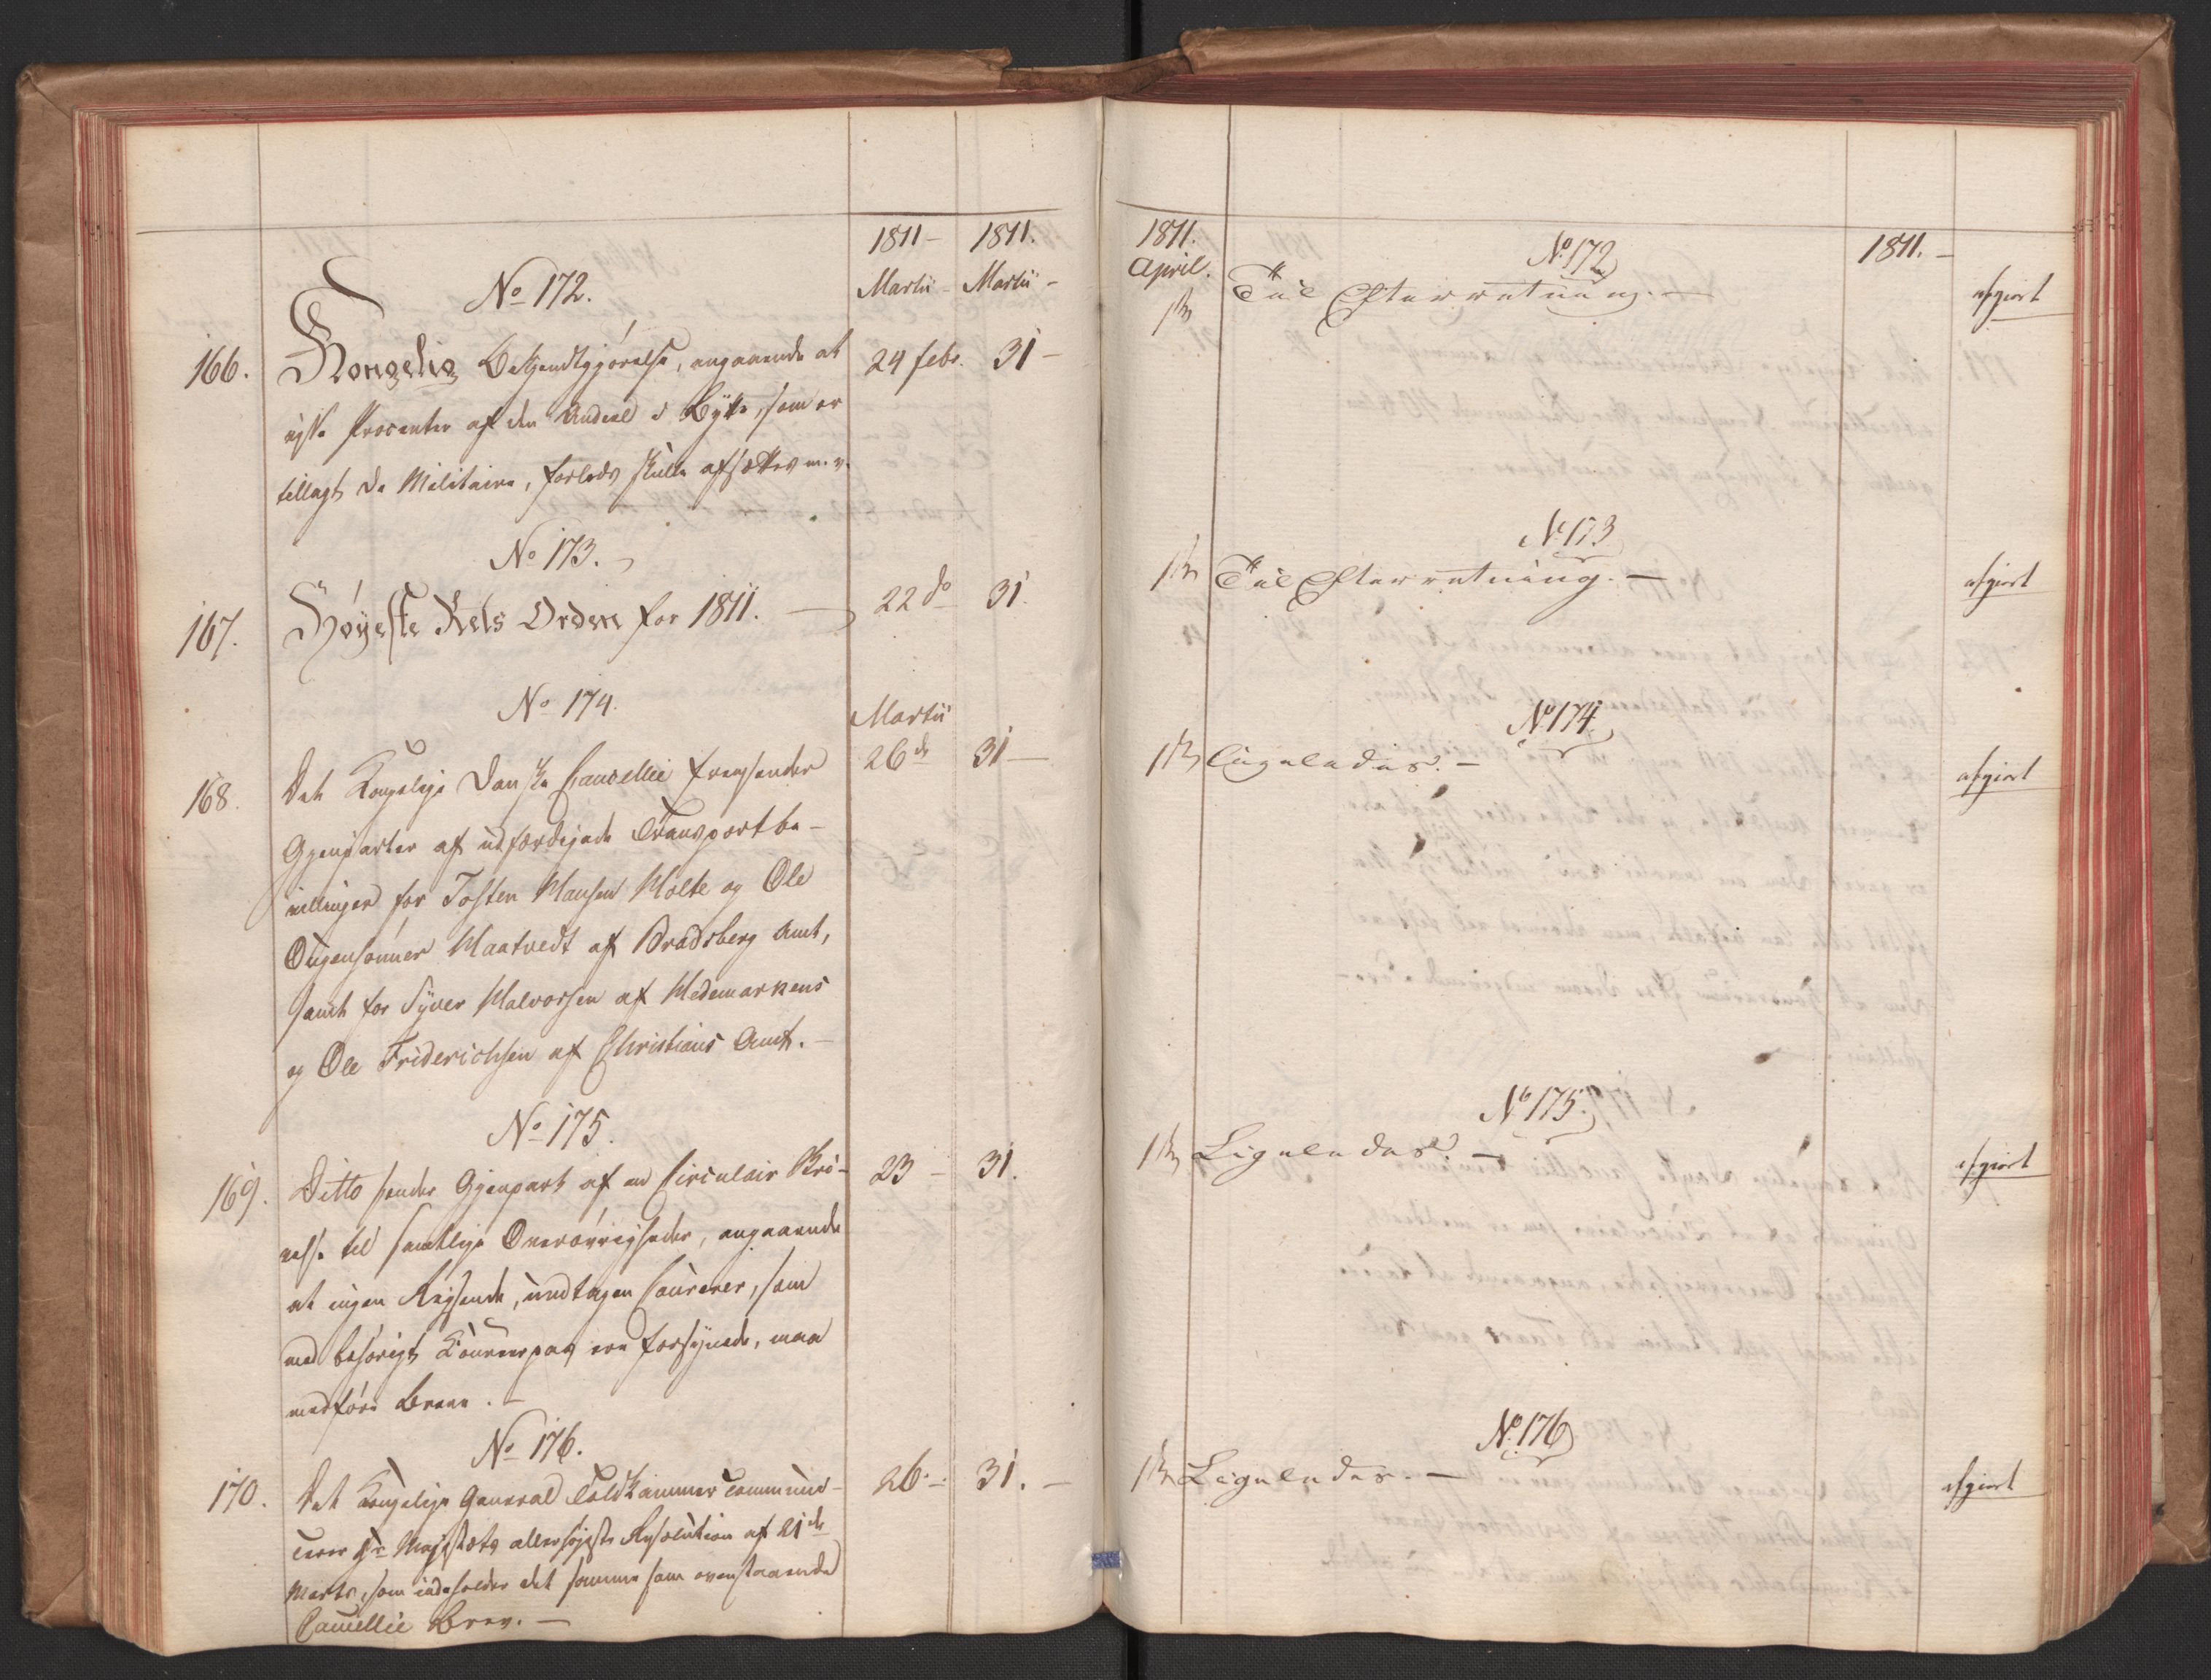 1811 – 1811.
Martii – Martii –
No 172.
166. Kongelig Bekjendtgjörelse, angaaende at 24 febr. 31 –
visse Procenter af den Andeel i Bytte, som er
tillagt de Militaire, forlods skulle afsættes m. v.
No 173.
167. Höyeste Rets Orden for 1811. — 22 do 31.
No 174. Martii
168. Det Kongelige Danske Cancellie fremsender 26de 31 —
Gjenparter af udfærdigede Transportbe-
villinger for Tosten Hansen Holte og Ole
Ougensönner Haatvedt af Bradsberg Amt,
samt for Syver Halvorsen af Hedemarkens
og Ole Friderichsen af Christians Amt. –
No 175.
169. Ditto sender Gjenpart af en Circulair Skri- 23 – 31.
velse til samtlige Overövrigheder, angaaende
at ingen Reysende, undtagen Courerer, som
med behörigt Koureerpas ere forsynede, maa
medföre Breve. –
No 176.
170. Det Kongelige General Toldkammer Commüni- 26 – 31. –
cerer Hs Majestæts allerhöjeste Resolution af 21de
Marts, som indeholder det samme som ovenstaaende
Cancellie Brev. —
1811. No 172 1811. –
April.
Til Efterretning. — afgiort
No 173
Til Efterretning. — afgiort
No 174.
Ligeledes. – afgiort
No 175.
Ligeledes. – afgiort
No 176
Ligeledes. — afgiort